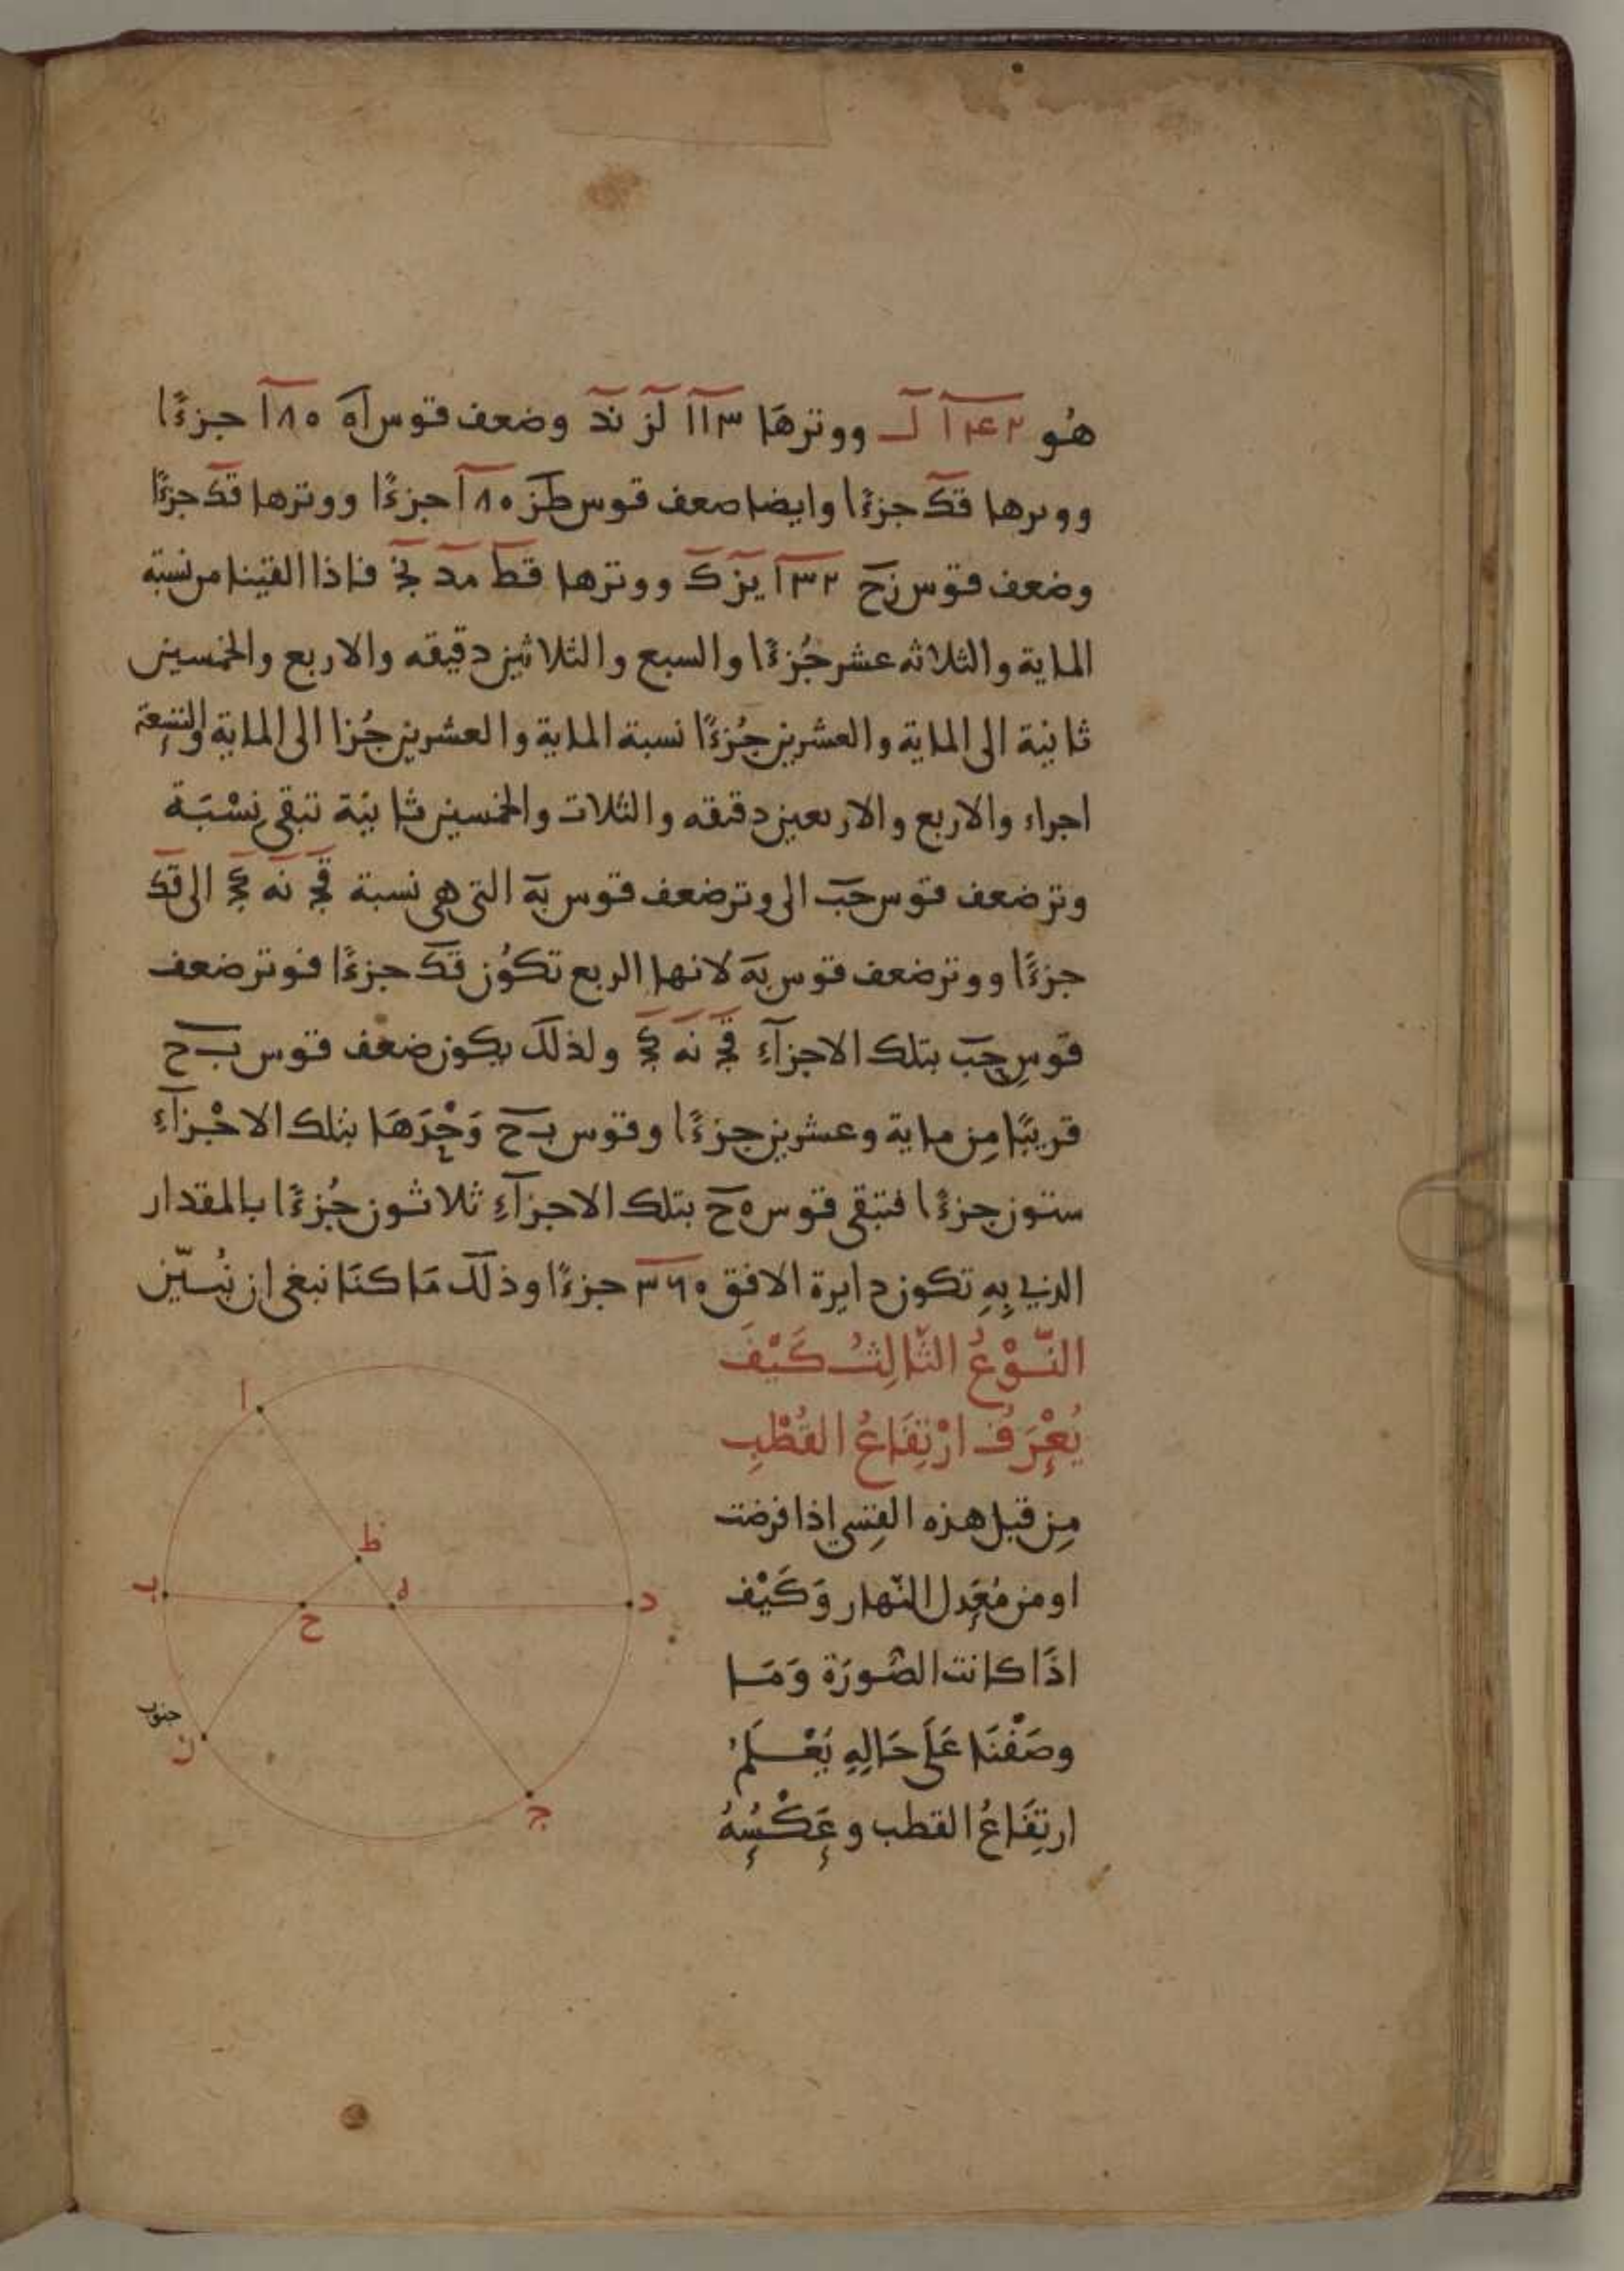 هُو ١٤٢ ل ووترهَا ١١٣ لز ند وضعف قوس اه ١٨٠ جزءًا
ووترها قك جزءًا وايضا ضعف قوس طز ١٨٠ جزءًا ووترها قك جزءًا
وضعف قوس زح ١٣٢ يز ك ووترها قط مد نج فاذا القينا من نسبة
الماية والثلاثه عشر جُزءًا والسبع والثلاثين دقيقه والاربع والخمسين
ثانية الى الماية والعشرين جُزءًا نسبة الماية والعشرين جُزا الى الماية والتسعة
اجراء والاربع والاربعين دقيقه والثلاث والخمسين ثانية تبقى نسْبَة
وتر ضعف قوس حب الى وتر ضعف قوس به التى هى نسبة قج نه كج الى قك
جزءًا ووتر ضعف قوس به لانها الربع تكوُن قك جزءًا فوتر ضعف
قوسِ حب بتلك الاجزآءِ قج نه كج ولذلك يكون ضعف قوس ب ح
قريبًا مِن ماية وعشرين جزءًا وقوس ب ح وَحْدَهَا بتلك الاجْزآءِ
ستون جزءًا فتبقى قوس ه ح بتلك الاجزآءِ ثلاثون جُزءًا بالمقدار
الذي بِهِ تكون دايرة الافق ٣٦٠ جزءًا وذلك مَا كنَا نبغى ان نُبيّن
النّوْعُ الثّالِثُ كَيْفَ
يُعْرَفُ ارْتِفَاعُ القُطْبِ
مِن قبل هذه القِسي اذا فرضت
او من مُعَدِل النّهار وَكَيْف
اذَا كانت الصُورَة وَمَا
وصَفْنَا عَلَى حَالِهِ يُعْلَمُ
ارتِفَاعُ القطب وعَكْسُهُ
ا
ط
ب
ه
د
ح
ن
ج